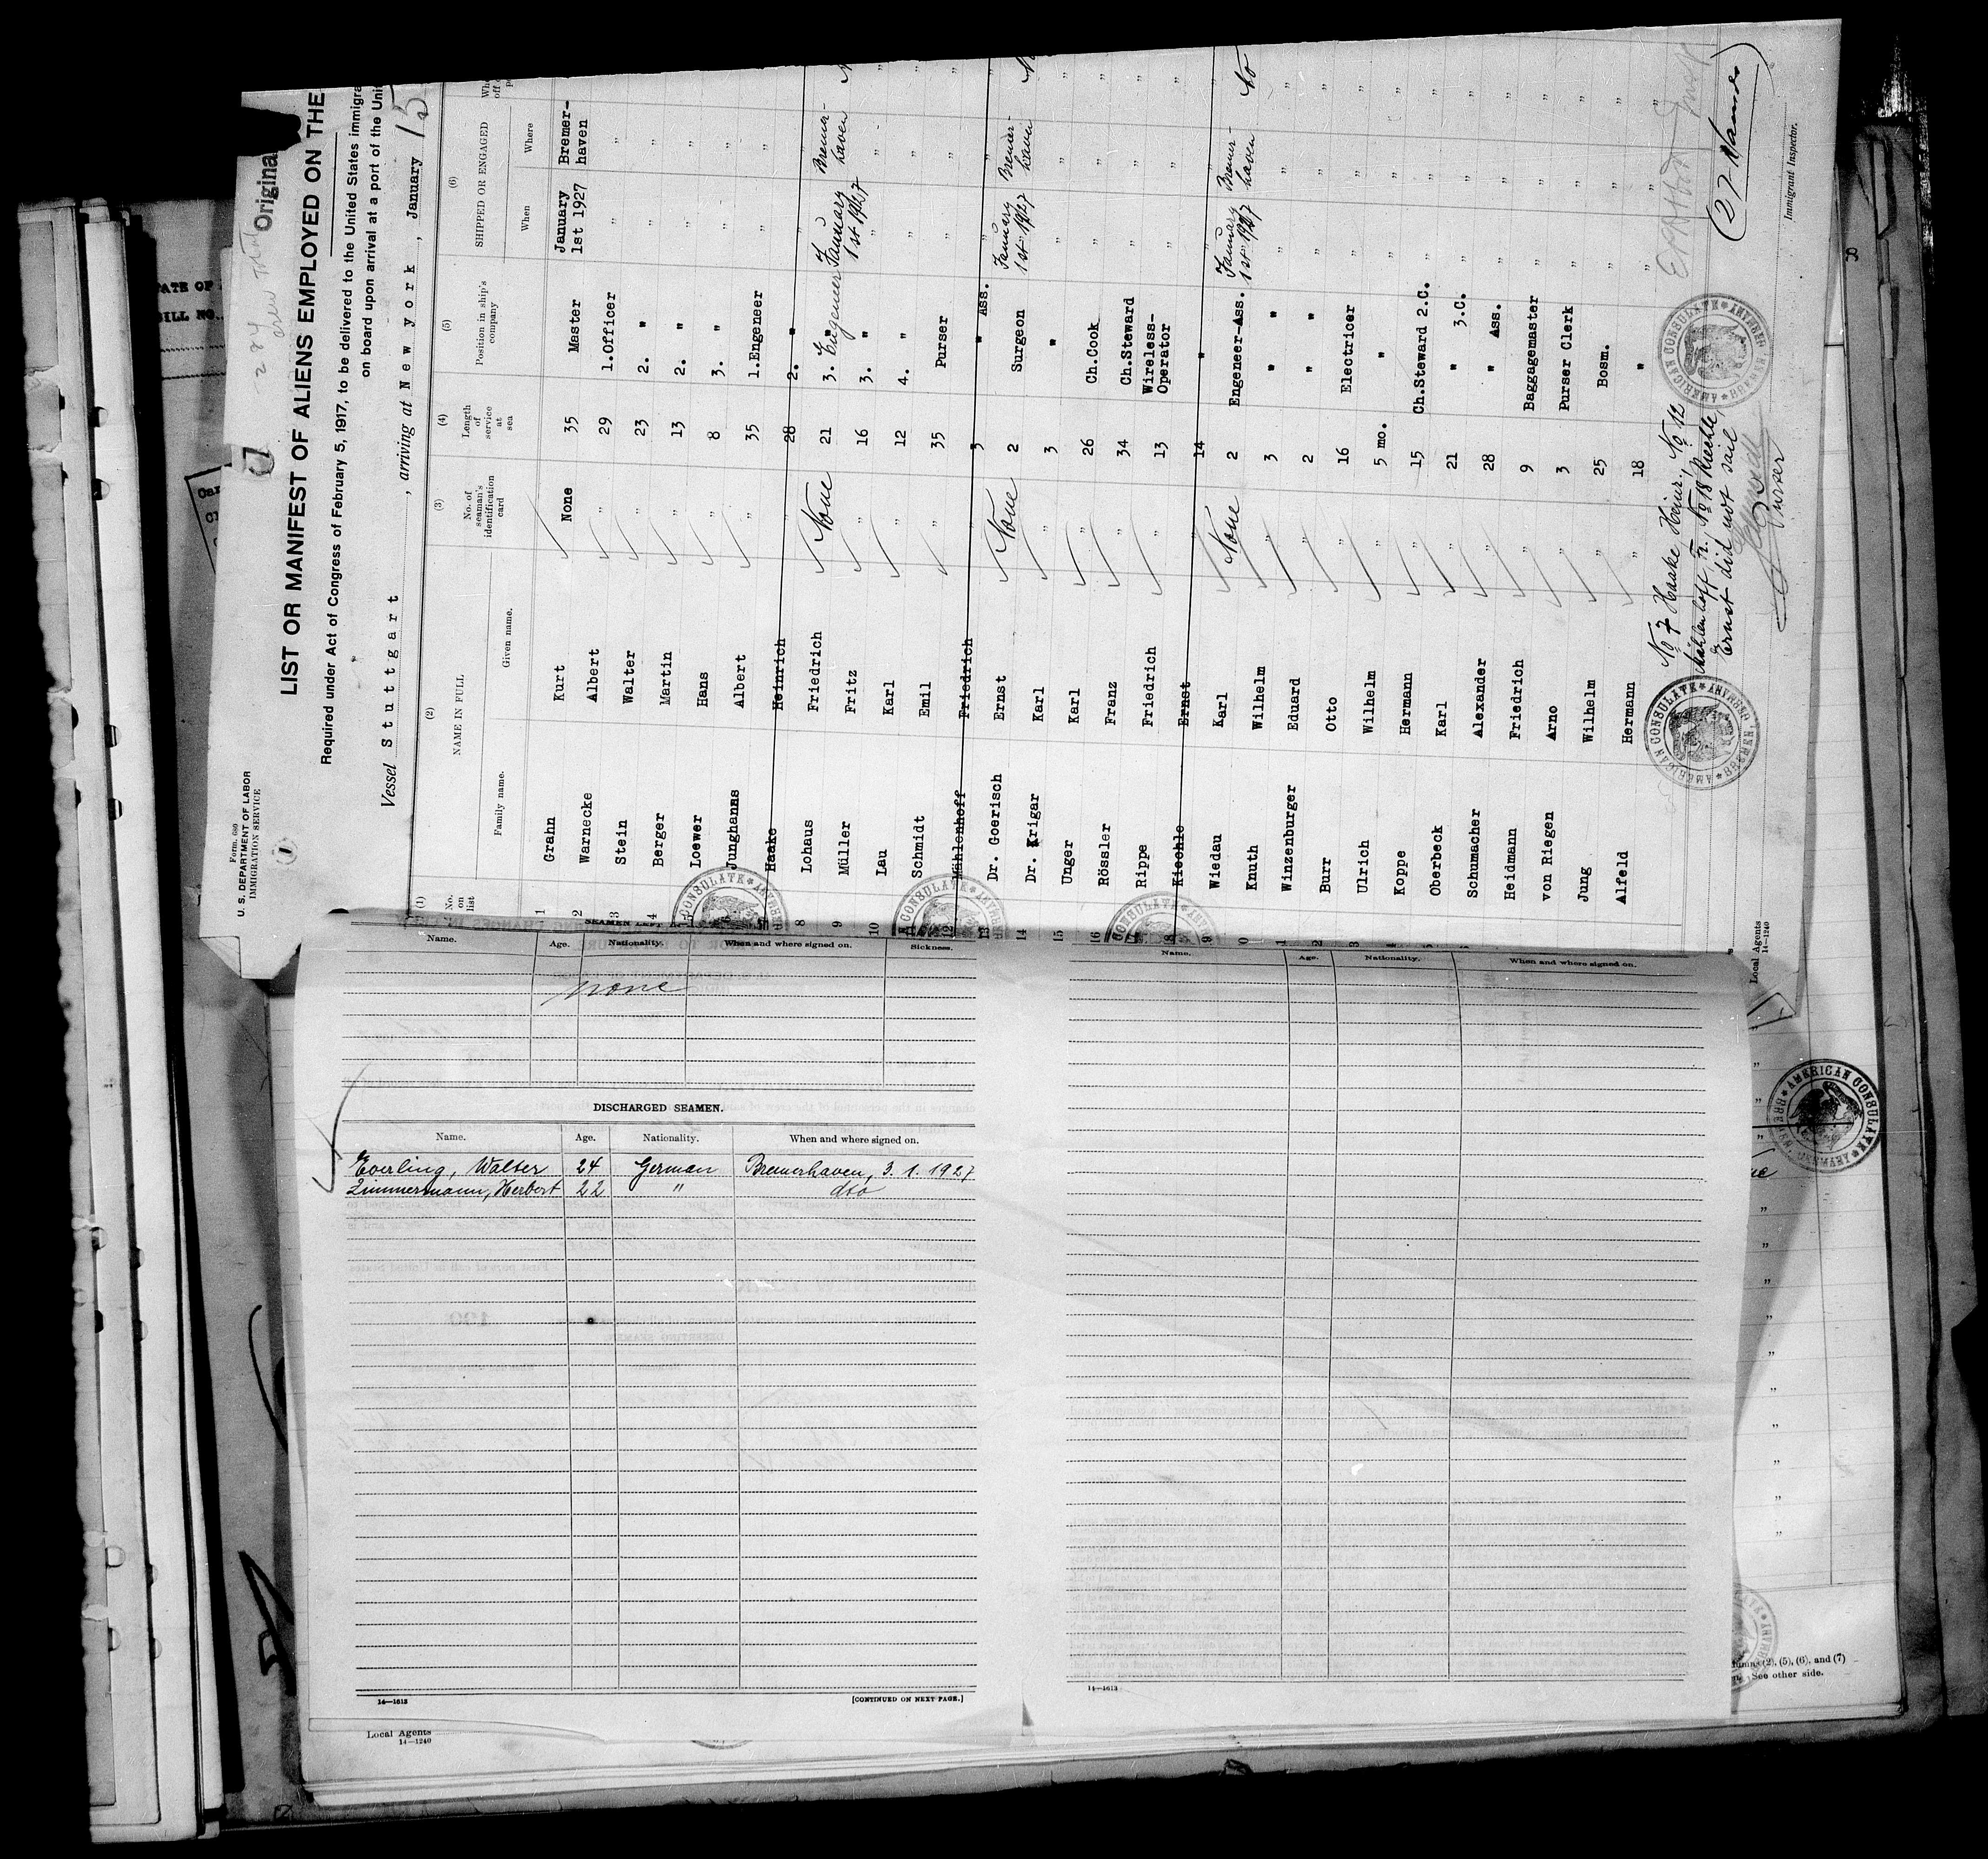 Original
Form 680
U. S. DEPARTMENT OF LABOR
IMMIGRATION SERVICE
(1)
LIST OR MANIFEST OF ALIENS EMPLOYED ON THE
Required under Act of Congress of February 5, 1917, to be delivered to the United States immigra
on board upon arrival at a port of the Uni
Vessel Stuttgart, arriving at New york, January 15
(1) (2) (3) (4) (5) (6)
No. on list NAME IN FULL No. of seaman's identification card Length of service at sea Position in ship's company SHIPPED OR ENGAGED
Family name. Given name. When Where
1 Grahn Kurt None 35 Master January 1st 1927 Bremer-haven
2 Warnecke Albert " 29 1.Officer " "
3 Stein Walter " 23 2. " " "
4 Berger Martin " 13 2. " " "
5 Loewer Hans " 8 3. " " "
6 Junghanns Albert " 35 1.Engeneer " "
7 Haake Heinrich " 28 2. " "
8 Lohaus Friedrich None 21 3. Engeneer January 1st 1927 Bremer-haven
9 Müller Fritz " 16 3. " " "
10 Lau Karl " 12 4. " " "
11 Schmidt Emil " 35 Purser " "
12 Mählenhoff Friedrich " 3 " Ass. " "
13 Dr. Goerisch Ernst None 2 Surgeon January 1st 1927 Bremer-haven
14 Dr. Krigar Karl " 3 " " "
15 Unger Karl " 26 Ch.Cook " "
16 Rössler Franz " 34 Ch.Steward " "
Rippe Friedrich " 13 Wireless-Operator " "
8 Kiechle Ernst " 14 " " "
9 Wiedau Karl None 2 Engeneer-Ass. January 1st 1927 Bremer-haven No
0 Knuth Wilhelm " 3 " " "
1 Winzenburger Eduard " 2 " " "
2 Burr Otto " 16 Electricer " "
3 Ulrich Wilhelm " 5 mo. " " "
Koppe Hermann " 15 Ch.Steward 2.C. " "
Oberbeck Karl " 21 " 3.C. " "
Schumacher Alexander " 28 " Ass. " "
Heidmann Friedrich " 9 Baggagemaster " "
von Riegen Arno " 3 Purser Clerk " "
Jung Wilhelm " 25 Bosm. " "
Alfeld Hermann " 18 " " "
No 7 Haake Heinr., No 12
Mählenhoff Fr. No 18 Kiechle,
Ernst did not sail
Purser
(27 Names)
Immigrant Inspector.
AMERICAN CONSULATE
BREMEN, GERMANY
Local Agents
14—1240
SEAMEN LEFT
Name. Age. Nationality. When and where signed on. Sickness.
none
DISCHARGED SEAMEN.
Name. Age. Nationality. When and where signed on.
Everling, Walter 24 German Bremerhaven, 3. 1. 1927
Zimmermann, Herbert 22 " dto
14—1613
[CONTINUED ON NEXT PAGE.]
Name. Age. Nationality. When and where signed on.
14—1613
Local Agents
14—1240
AMERICAN CONSULATE
(2), (5), (6), and (7)
See other side.